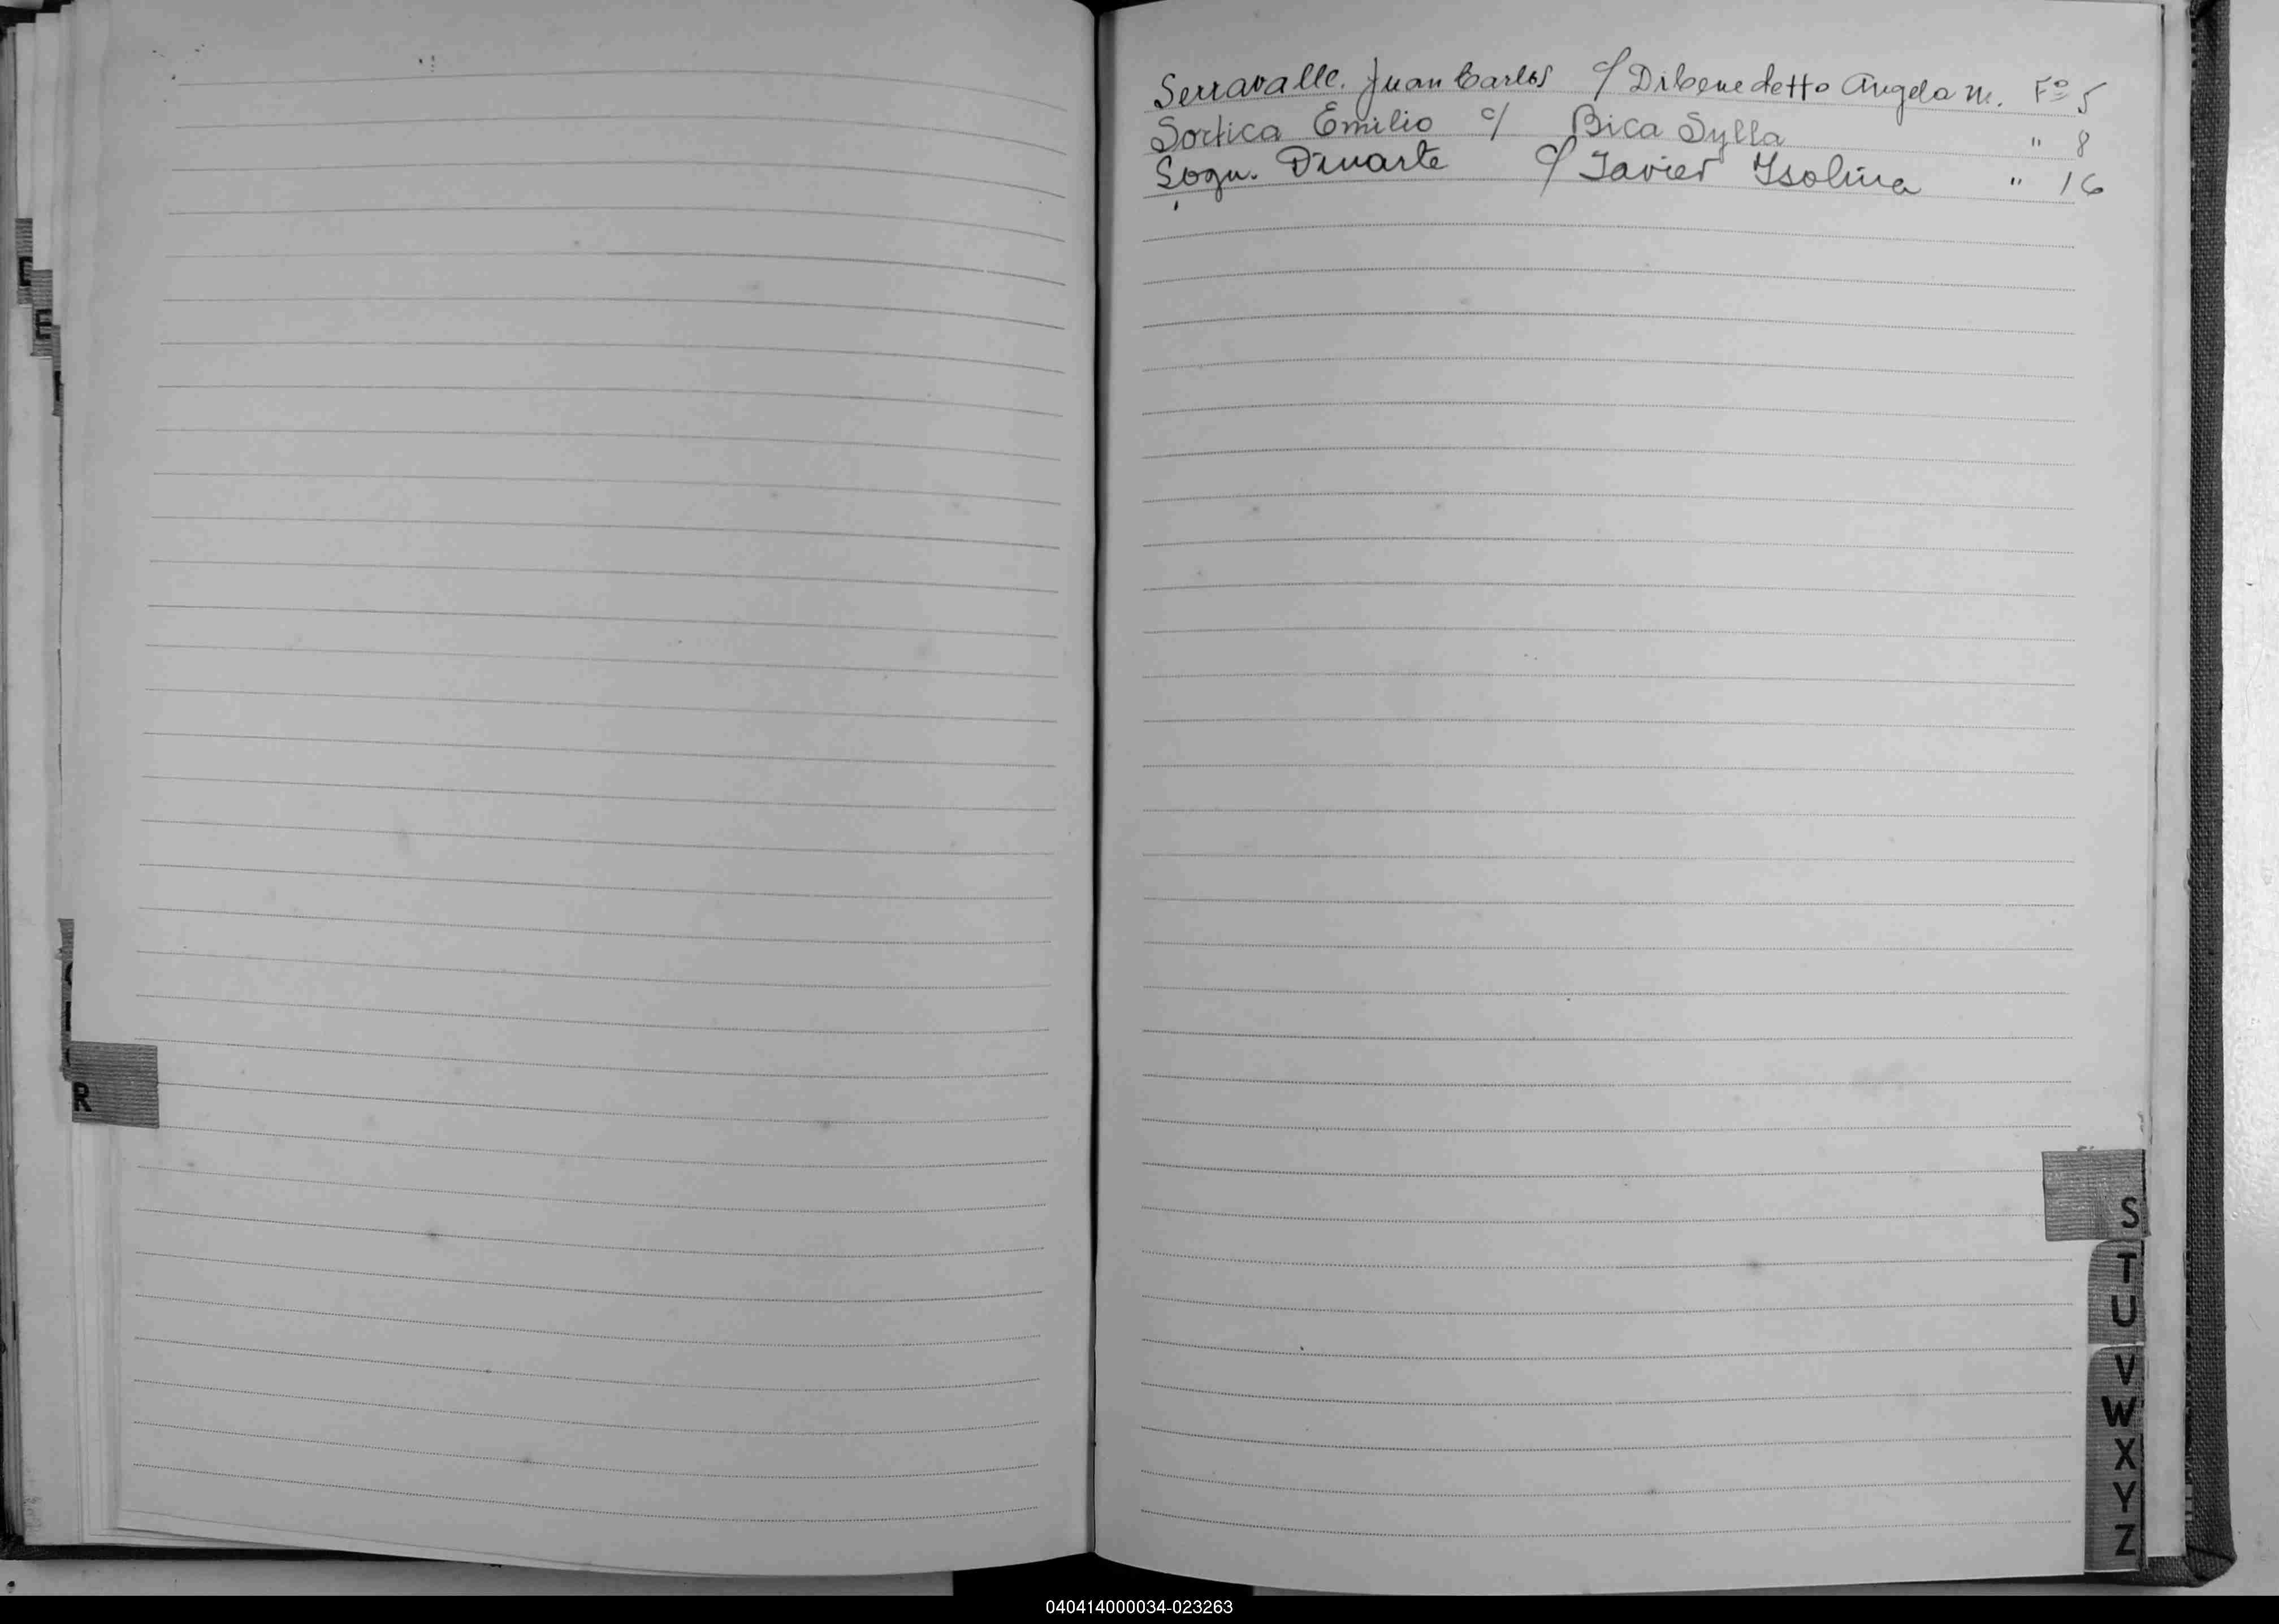 Serravalle. Juan Carlos c/ Dibenedetto Angela M. Fº 5
Sortica Emilio c/ Bica Sylla " 8
Dinarte c/ Javier Ysolina " 16
E
R
S
T
U
V
W
X
Y
Z
040414000034-023263